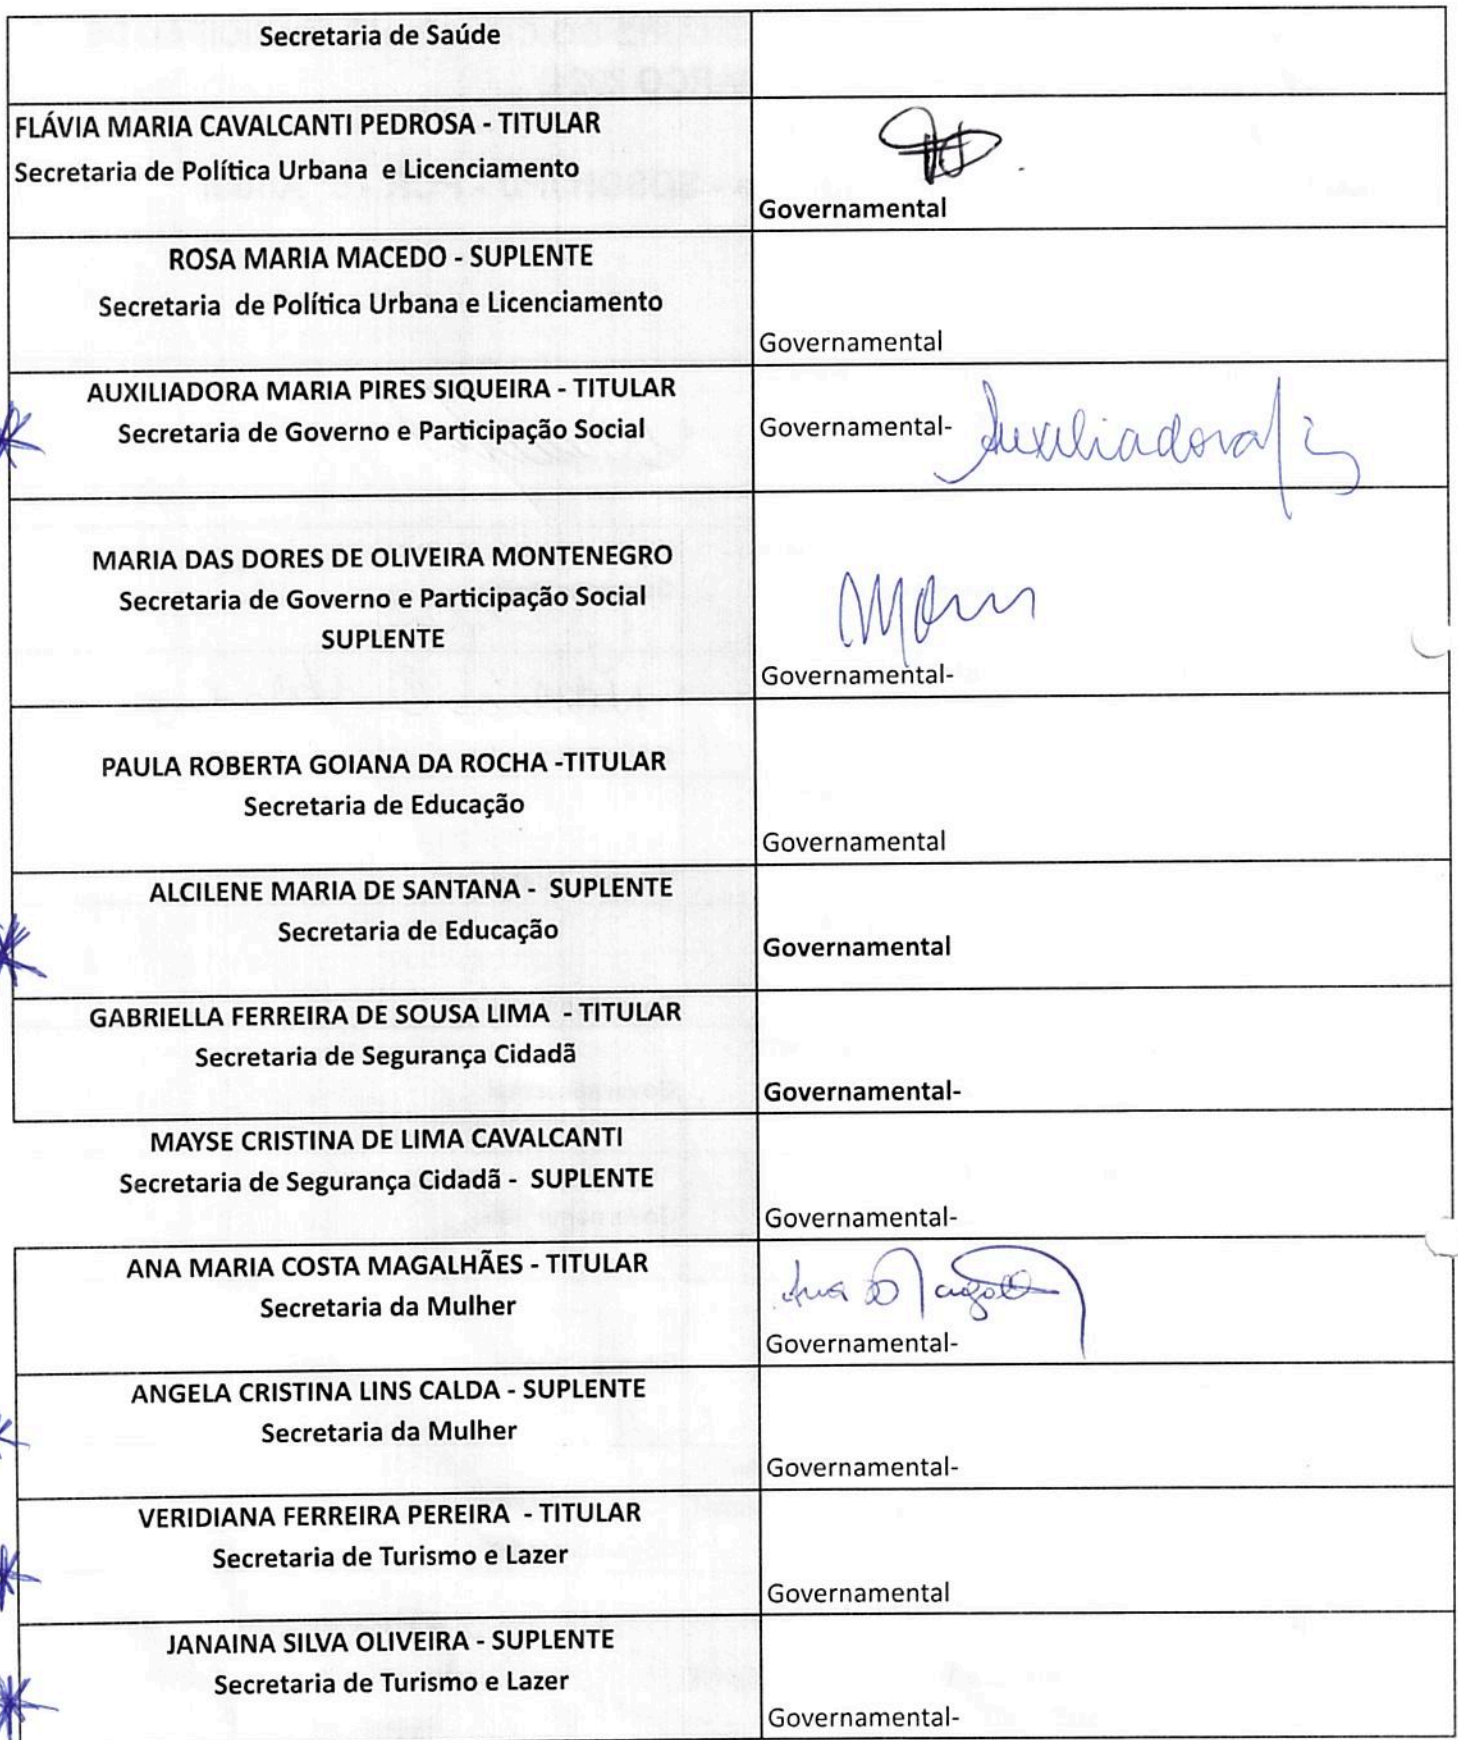 Secretaria de Saúde
FLÁVIA MARIA CAVALCANTI PEDROSA - TITULAR
Secretaria de Política Urbana e Licenciamento
Governamental
ROSA MARIA MACEDO - SUPLENTE
Secretaria de Política Urbana e Licenciamento
Governamental
AUXILIADORA MARIA PIRES SIQUEIRA - TITULAR
Secretaria de Governo e Participação Social
Governamental- Auxiliadora
MARIA DAS DORES DE OLIVEIRA MONTENEGRO
Secretaria de Governo e Participação Social
SUPLENTE
Governamental-
PAULA ROBERTA GOIANA DA ROCHA -TITULAR
Secretaria de Educação
Governamental
ALCILENE MARIA DE SANTANA - SUPLENTE
Secretaria de Educação
Governamental
GABRIELLA FERREIRA DE SOUSA LIMA - TITULAR
Secretaria de Segurança Cidadã
Governamental-
MAYSE CRISTINA DE LIMA CAVALCANTI
Secretaria de Segurança Cidadã - SUPLENTE
Governamental-
ANA MARIA COSTA MAGALHÃES - TITULAR
Secretaria da Mulher
Ana
Governamental-
ANGELA CRISTINA LINS CALDA - SUPLENTE
Secretaria da Mulher
Governamental-
VERIDIANA FERREIRA PEREIRA - TITULAR
Secretaria de Turismo e Lazer
Governamental
JANAINA SILVA OLIVEIRA - SUPLENTE
Secretaria de Turismo e Lazer
Governamental-